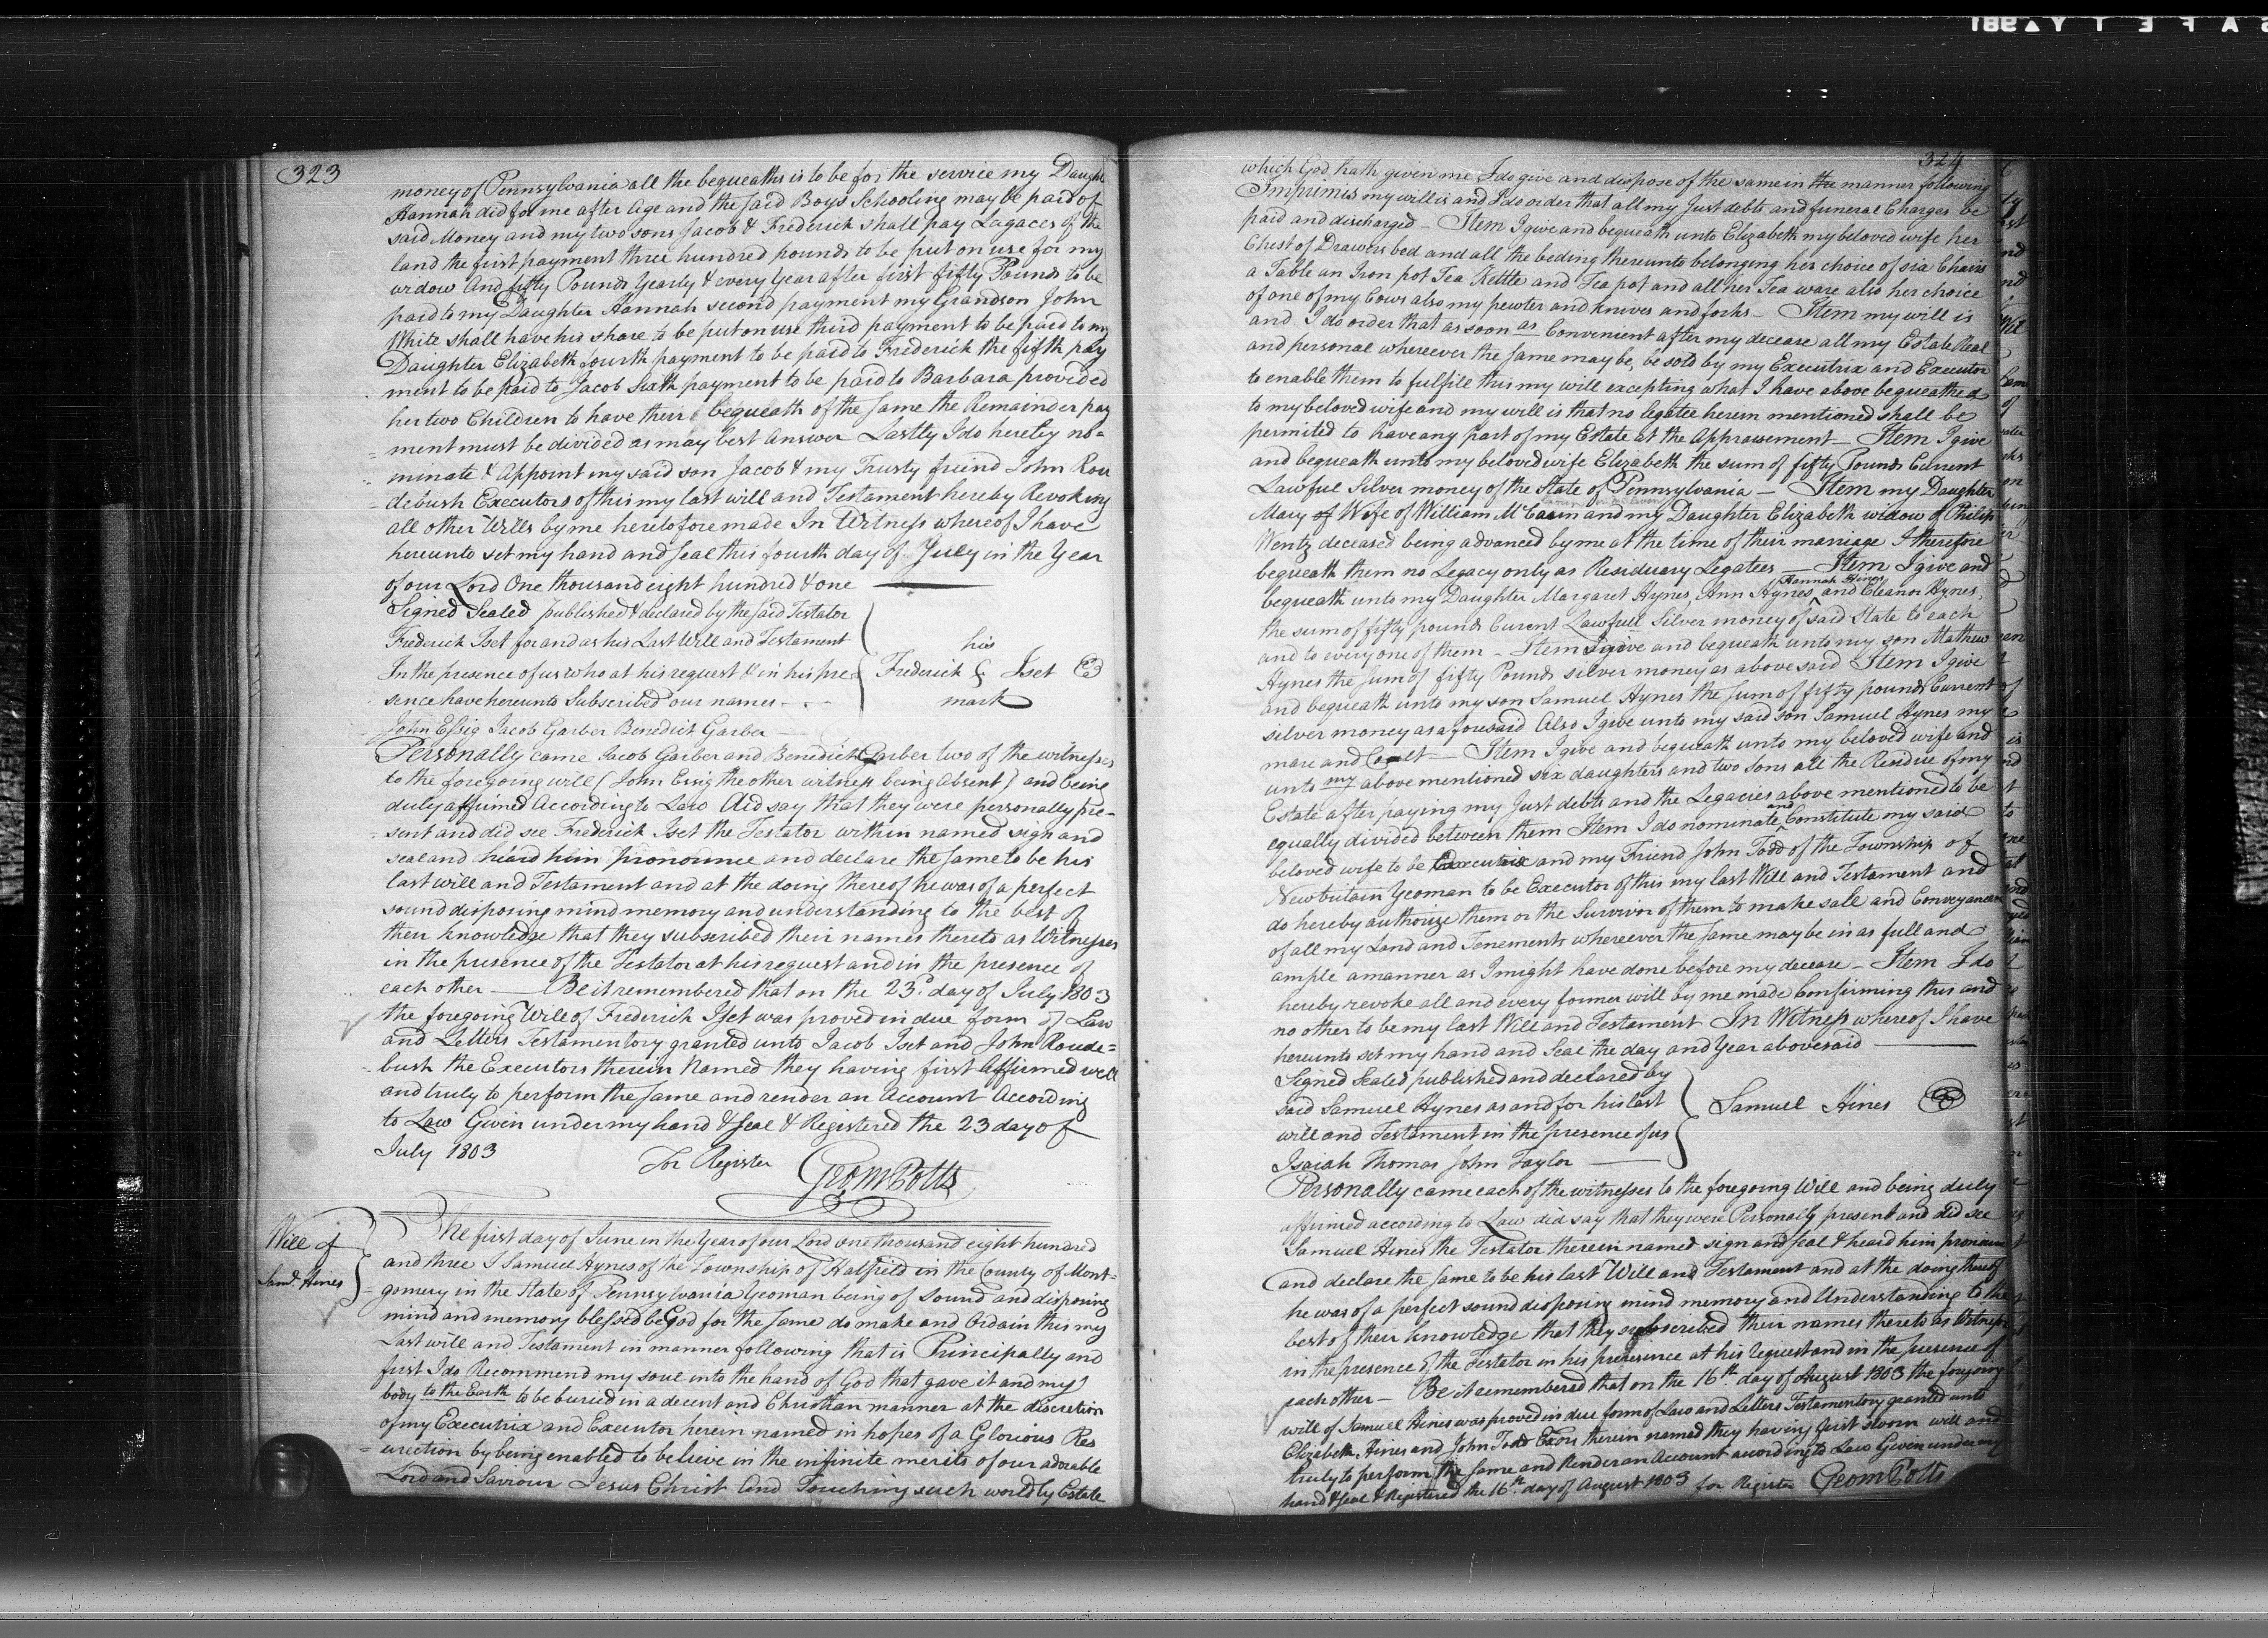 323
money of Pennsylvania all the bequeaths is to be for the service my Daught
Hannah did for me after Age and the said Boys Schooling may be paid of
said Money and my two sons Jacob & Frederick shall pay Lagaces of the
land the first payment three hundred pounds to be put on use for my
widow And fifty Pounds yearly & every year after first fifty Pounds to be
paid to my Daughter Hannah second payment my Grandson John
White shall have his share to be put on use third payment to be paid to my
Daughter Elizabeth fourth payment to be paid to Frederick the fifth pay
ment to be paid to Jacob sixth payment to be paid to Barbara provided
her two Children to have their bequeath of the same the Remainder pay
= ment must be divided as may best answer Lastly I do hereby no=
- minate & Appoint my said son Jacob & my Trusty friend John Rou
= debush Executors of this my last will and Testament hereby Revoking
all other Wills by me heretofore made In Witness whereof I have
hereunto set my hand and seal this fourth day of July in the Year
of our Lord One thousand eight hundred & one
Signed Sealed published & declared by the said Testator
Frederick Iset for and as his Last Will and Testament
In the presence of us who at his request & in his pre=
sence have hereunto Subscribed our names
his
Frederick Iset
mark
John Essig Jacob Garber Benedict Garber
Personally came Jacob Garber and Benedict Garber two of the witnesses
to the foregoing will (John Essig the other witness being absent) and being
duly affirmed According to Law did say that they were personally pre-
= sent and did see Frederick Iset the Testator within named sign and
seal and heard him pronounce and declare the same to be his
last will and Testament and at the doing thereof he was of a perfect
sound disposing mind memory and understanding to the best of
their knowledge that they subscribed their names thereto as Witnesses
in the presence of the Testator at his request and in the presence of
each other — Be it remembered that on the 23d. day of July 1803
the foregoing Will of Frederick Iset was proved in due form of Law
and Letters Testamentory granted unto Jacob Iset and John Roude=
bush the Executors therein Named they having first Affirmed well
and truly to perform the same and render an Account According
to Law Given under my hand & seal & Registered the 23 day of
July 1803 for Register Geo M Potts
Will of
Saml. Hines
The first day of June in the Year of our Lord One thousand eight hundred
and three I Samuel Hynes of the Township of Hatfield in the County of Mont-
= gomery in the State of Pennsylvania Yeoman being of sound and disposing
mind and memory blessed be God for the same do make and Ordain this my
Last will and Testament in manner following that is Principally and
first I do Recommend my soul into the hand of God that gave it and my
body to the Earth to be buried in a decent and Christian manner at the discretion
of my Executrix and Executor herein named in hopes of a Glorious Res
= urection by being enabled to believe in the infinite merits of our adorable
Lord and Saviour Jesus Christ And Touching such worldly Estate
324
which God hath given me I do give and dispose of the same in the manner following
Imprimis my will is and I do order that all my Just debts and funeral Charges be
paid and discharged — Item I give and bequeath unto Elizabeth my beloved wife her
Chest of Drawers bed and all the beding thereunto belonging her choice of six Chairs
a Table an Iron pot Tea Kettle and Tea pot and all her Tea ware also her choice
of one of my Cows also my pewter and knives and forks — Item my will is
and I do order that as soon as Convenient after my decease all my Estate Real
and personal whereever the same may be, be sold by my Executrix and Executor
to enable them to fulfill this my will excepting what I have above bequeathed
to my beloved wife and my will is that no legatee herein mentioned shall be
permited to have any part of my Estate at the Appraisement — Item I give
and bequeath unto my beloved wife Elizabeth the sum of fifty Pounds Current
Lawful Silver money of the State of Pennsylvania — Item my Daughter
Mary of Wife of William McCain and my Daughter Elizabeth widow of Philip
Wentz deceased being advanced by me at the time of their marriage I therefore
bequeath them no Legacy only as Residuary Legatees — Item I give and
bequeath unto my Daughter Margaret Hynes, Ann Hynes, Hannah Hines and Eleanor Hynes,
the sum of fifty pounds Curent Lawfull Silver money of said State to each
and to every one of them — Item I give and bequeath unto my son Mathew
Hynes the sum of fifty Pounds silver money as above said Item I give
and bequeath unto my son Samuel Hynes the sum of fifty pounds Current
silver money as aforesaid Also I give unto my said son Samuel Hynes my
mare and Coalt — Item I give and bequeath unto my beloved wife and
unto my above mentioned six daughters and two sons all the Residue of my
Estate after paying my Just debts and the Legacies above mentioned to be
equally divided between them Item I do nominate and Constitute my said
beloved wife to be Executrix and my Friend John Todd of the Township of
Newbritain Yeoman to be Executor of this my last Will and Testament and
do hereby authorize them or the Survivor of them to make sale and Conveyances
of all my Land and Tenements whereever the same may be in as full and
ample a manner as I might have done before my decease — Item I do
hereby revoke all and every former will by me made Confirming this and
no other to be my last Will and Testament In Witness whereof I have
hereunto set my hand and Seal the day and Year abovesaid
Signed Sealed published and declared by
said Samuel Hynes as and for his last
will and Testament in the presence of us
Samuel Hines
Isaiah Thomas John Taylor
Personally came each of the witnesses to the foregoing Will and being duly
affirmed according to Law did say that they were Personally present and did see
Samuel Hines the Testator therein named sign and seal & heard him pronounce
and declare the same to be his last Will and Testament and at the doing thereof
he was of a perfect sound disposing mind memory and Understanding to the
best of their knowledge that they subscribed their names thereto as Witnesses
in the presence of the Testator in his presence at his request and in the presence of
each other — Be it remembered that on the 16th day of August 1803 the foregoing
will of Samuel Hines was proved in due form of Law and Letters Testamentory granted unto
Elizabeth Hines and John Todd Exors therein named they having first sworn well and
truly to perform the same and Render an Account according to Law Given under my
hand & seal & Registered the 16th. day of August 1803 for Register Geo M Potts